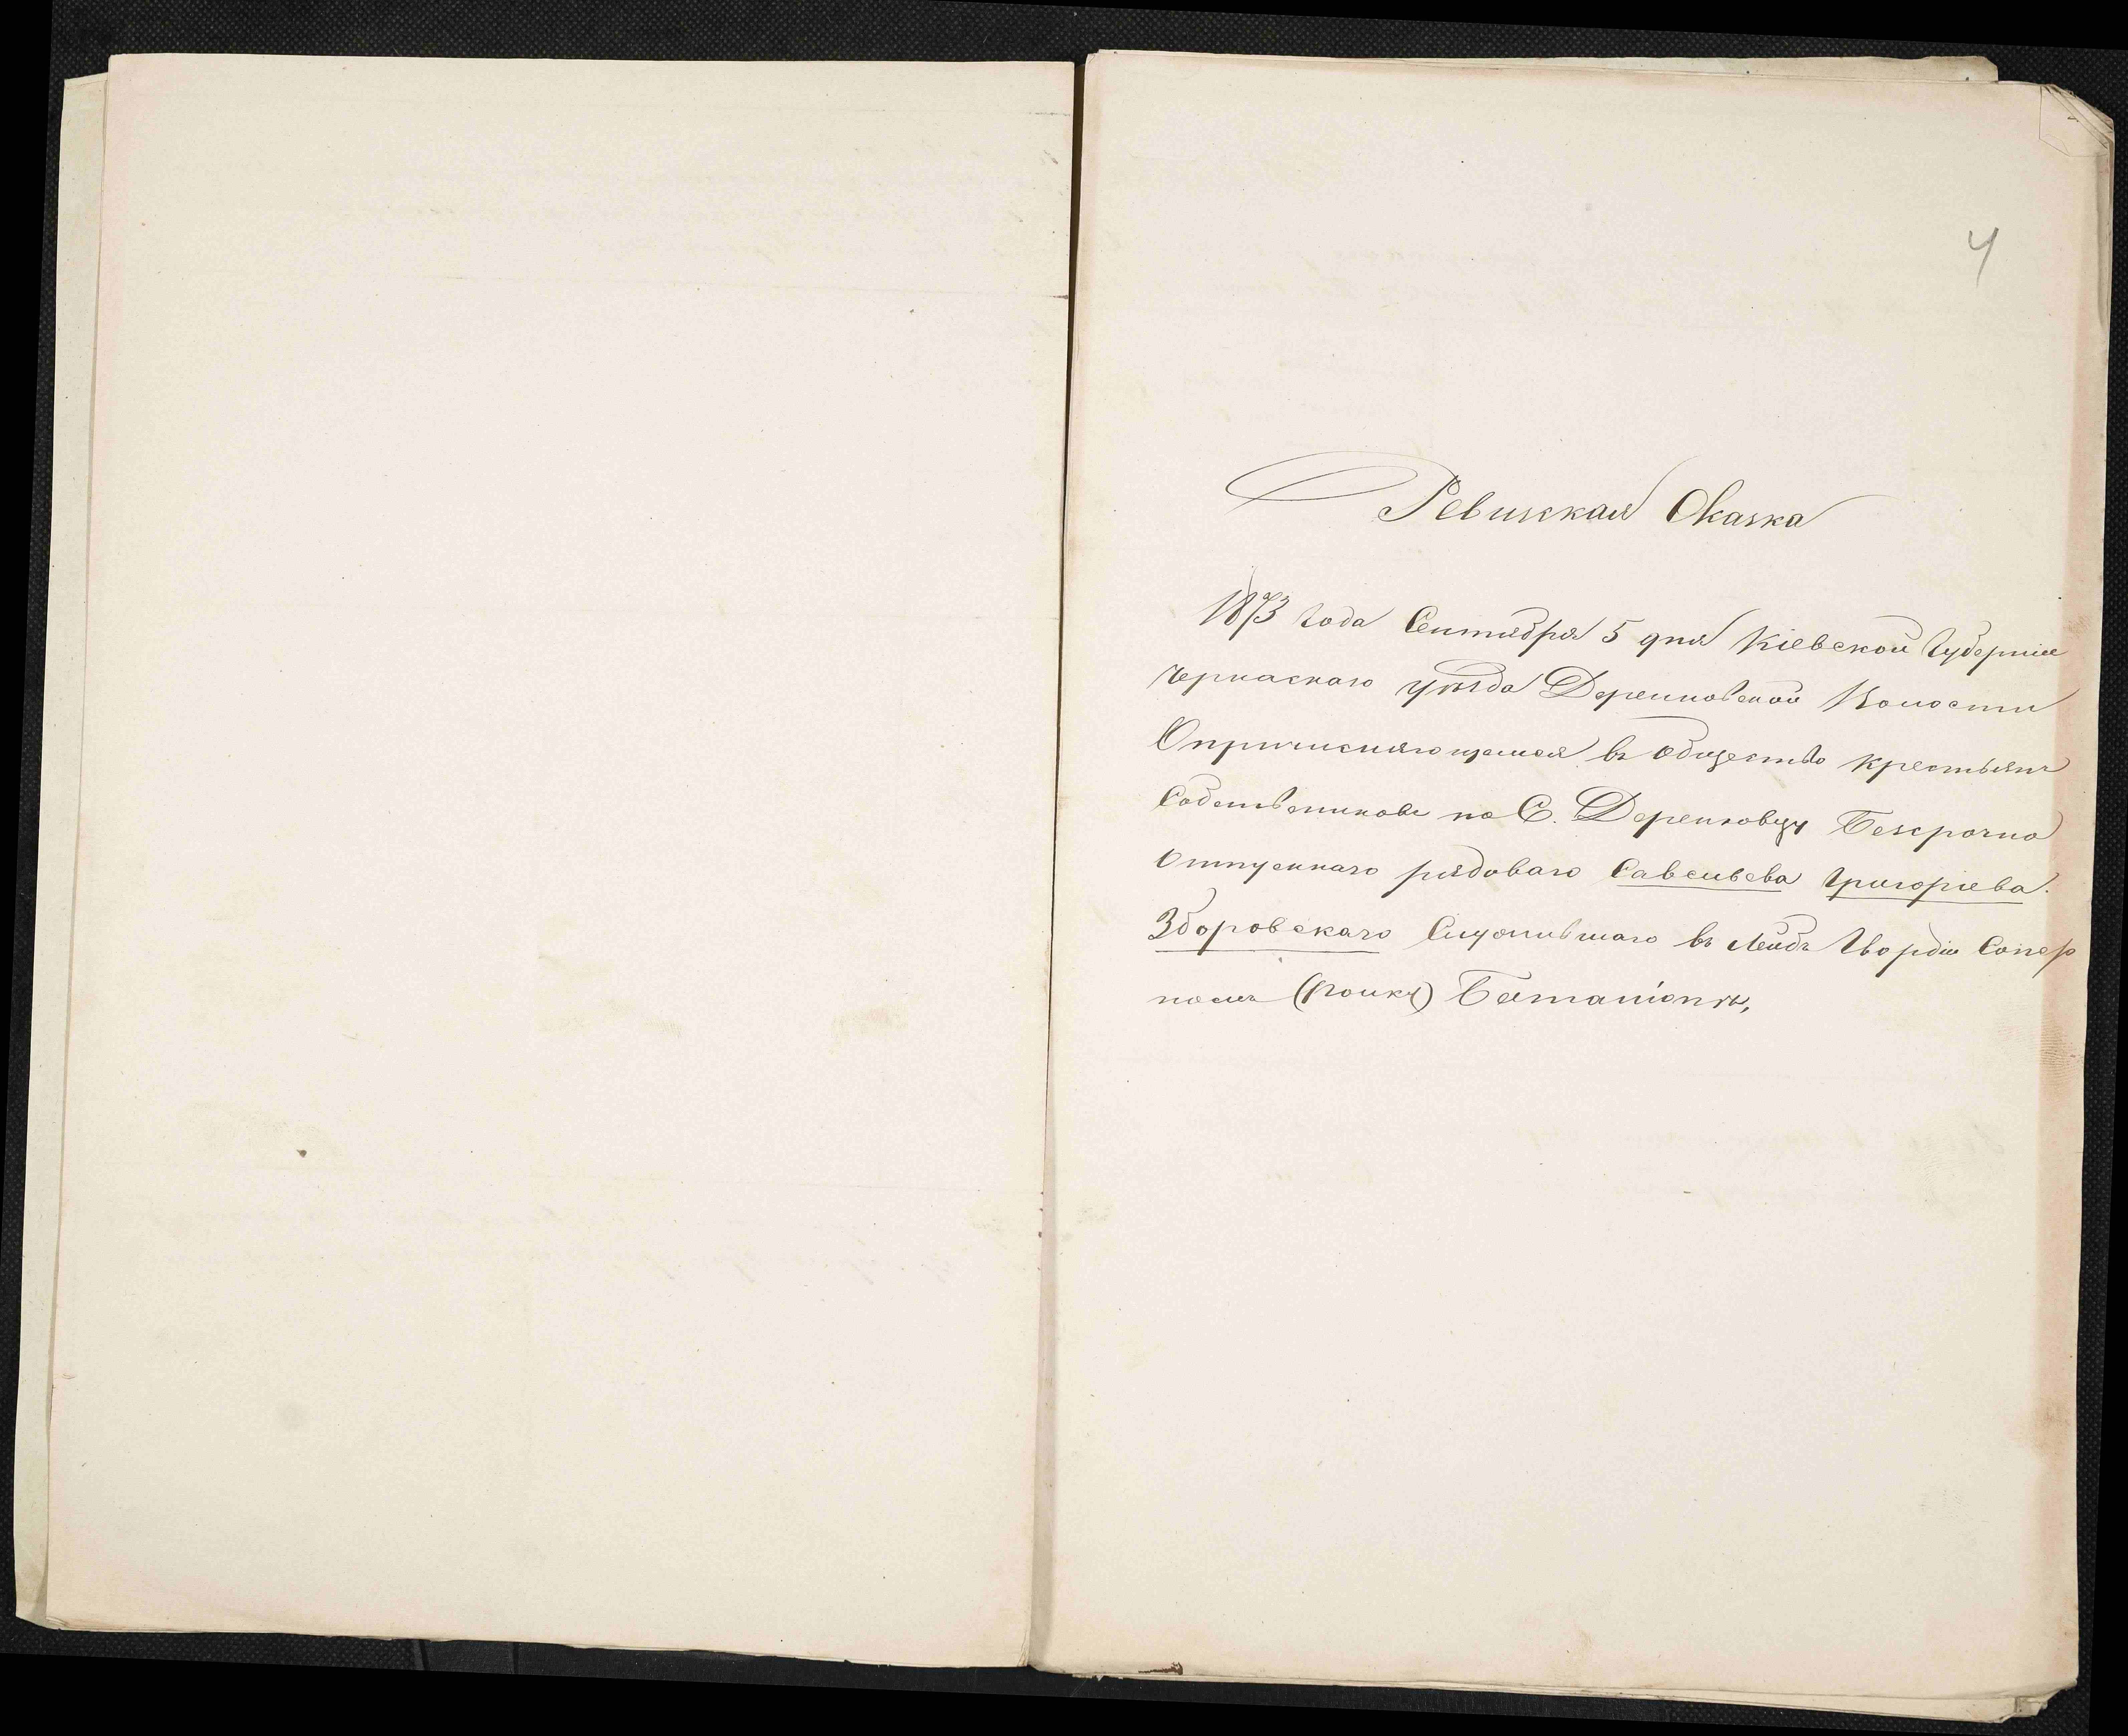 4
Ревизская Сказка
1873 года Сентября 5 дня Кіевской Губерніи
Черкаскаго уѣзда Деренковской Волости
О причисляющемся въ общество крестьянъ
Собственниковъ по С. Деренковцу Безсрочно
Отпускнаго рядоваго Савельева Григорьева
Зборовскаго Служившаго въ Лейбъ Гвардіи Сапер
номъ (полку) Баталіонѣ,